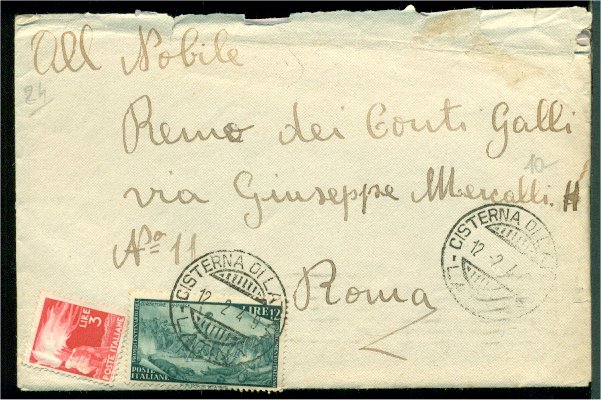 24
All Nobile
Remo dei Conti Galli
10
via Giuseppe Mercalli
Nº 11
Roma
CISTERNA DI LA
12.2.4
LATINA
CISTERNA DI LA
12.2.4
LA
LIRE 3
POSTE ITALIANE
LIRE 12
POSTE
ITALIANE